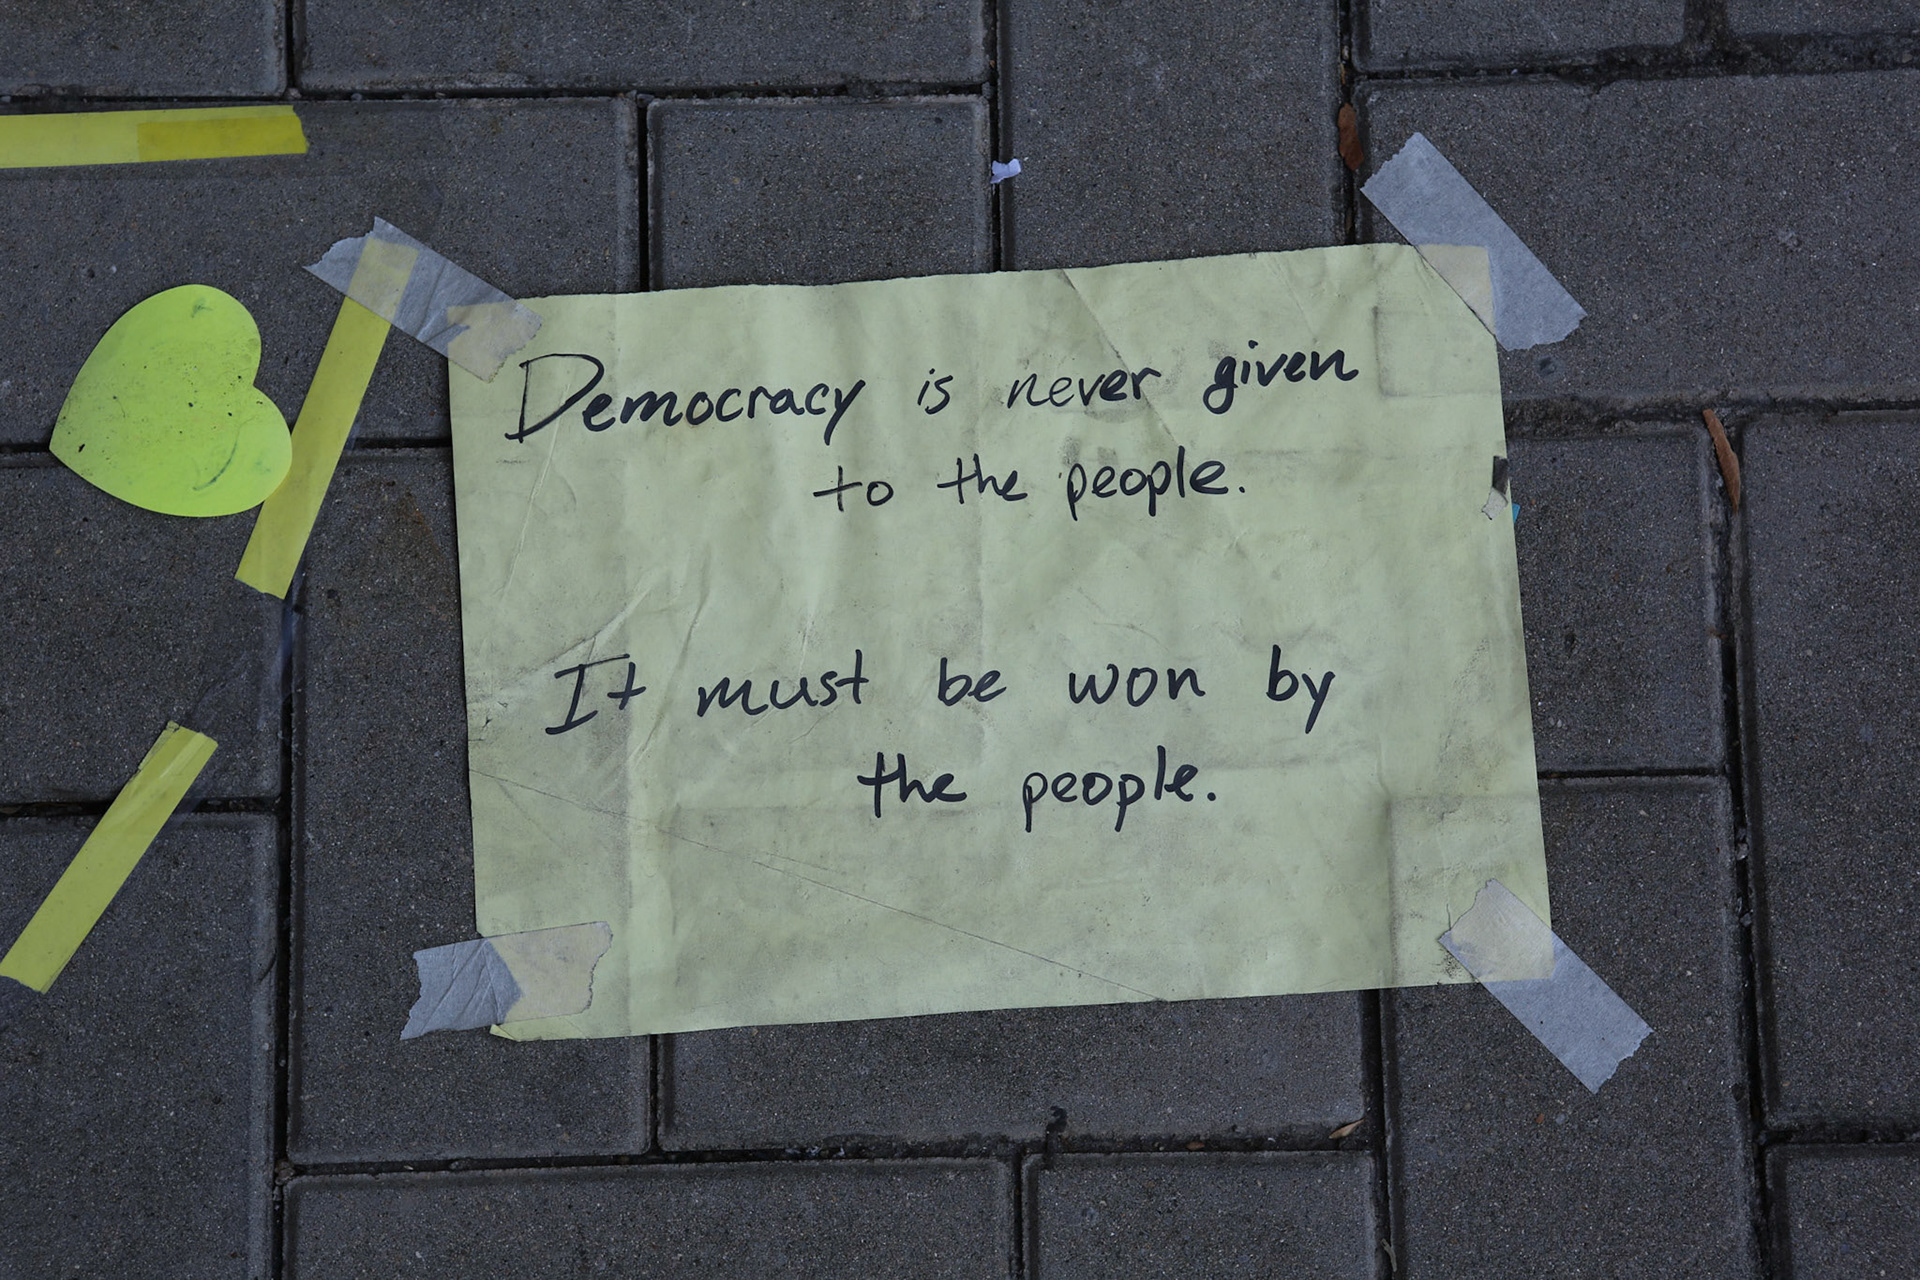 Democracy is never given
to the people.
It must be won by
the people.